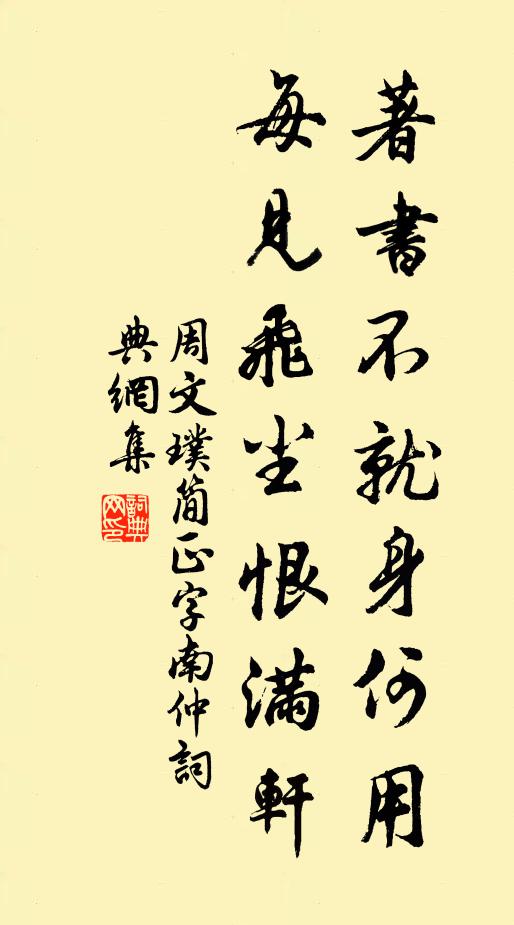 著書不就身何用
每見飛尘恨滿軒
周文璞简正字南仲詞
典網集
詞典網印